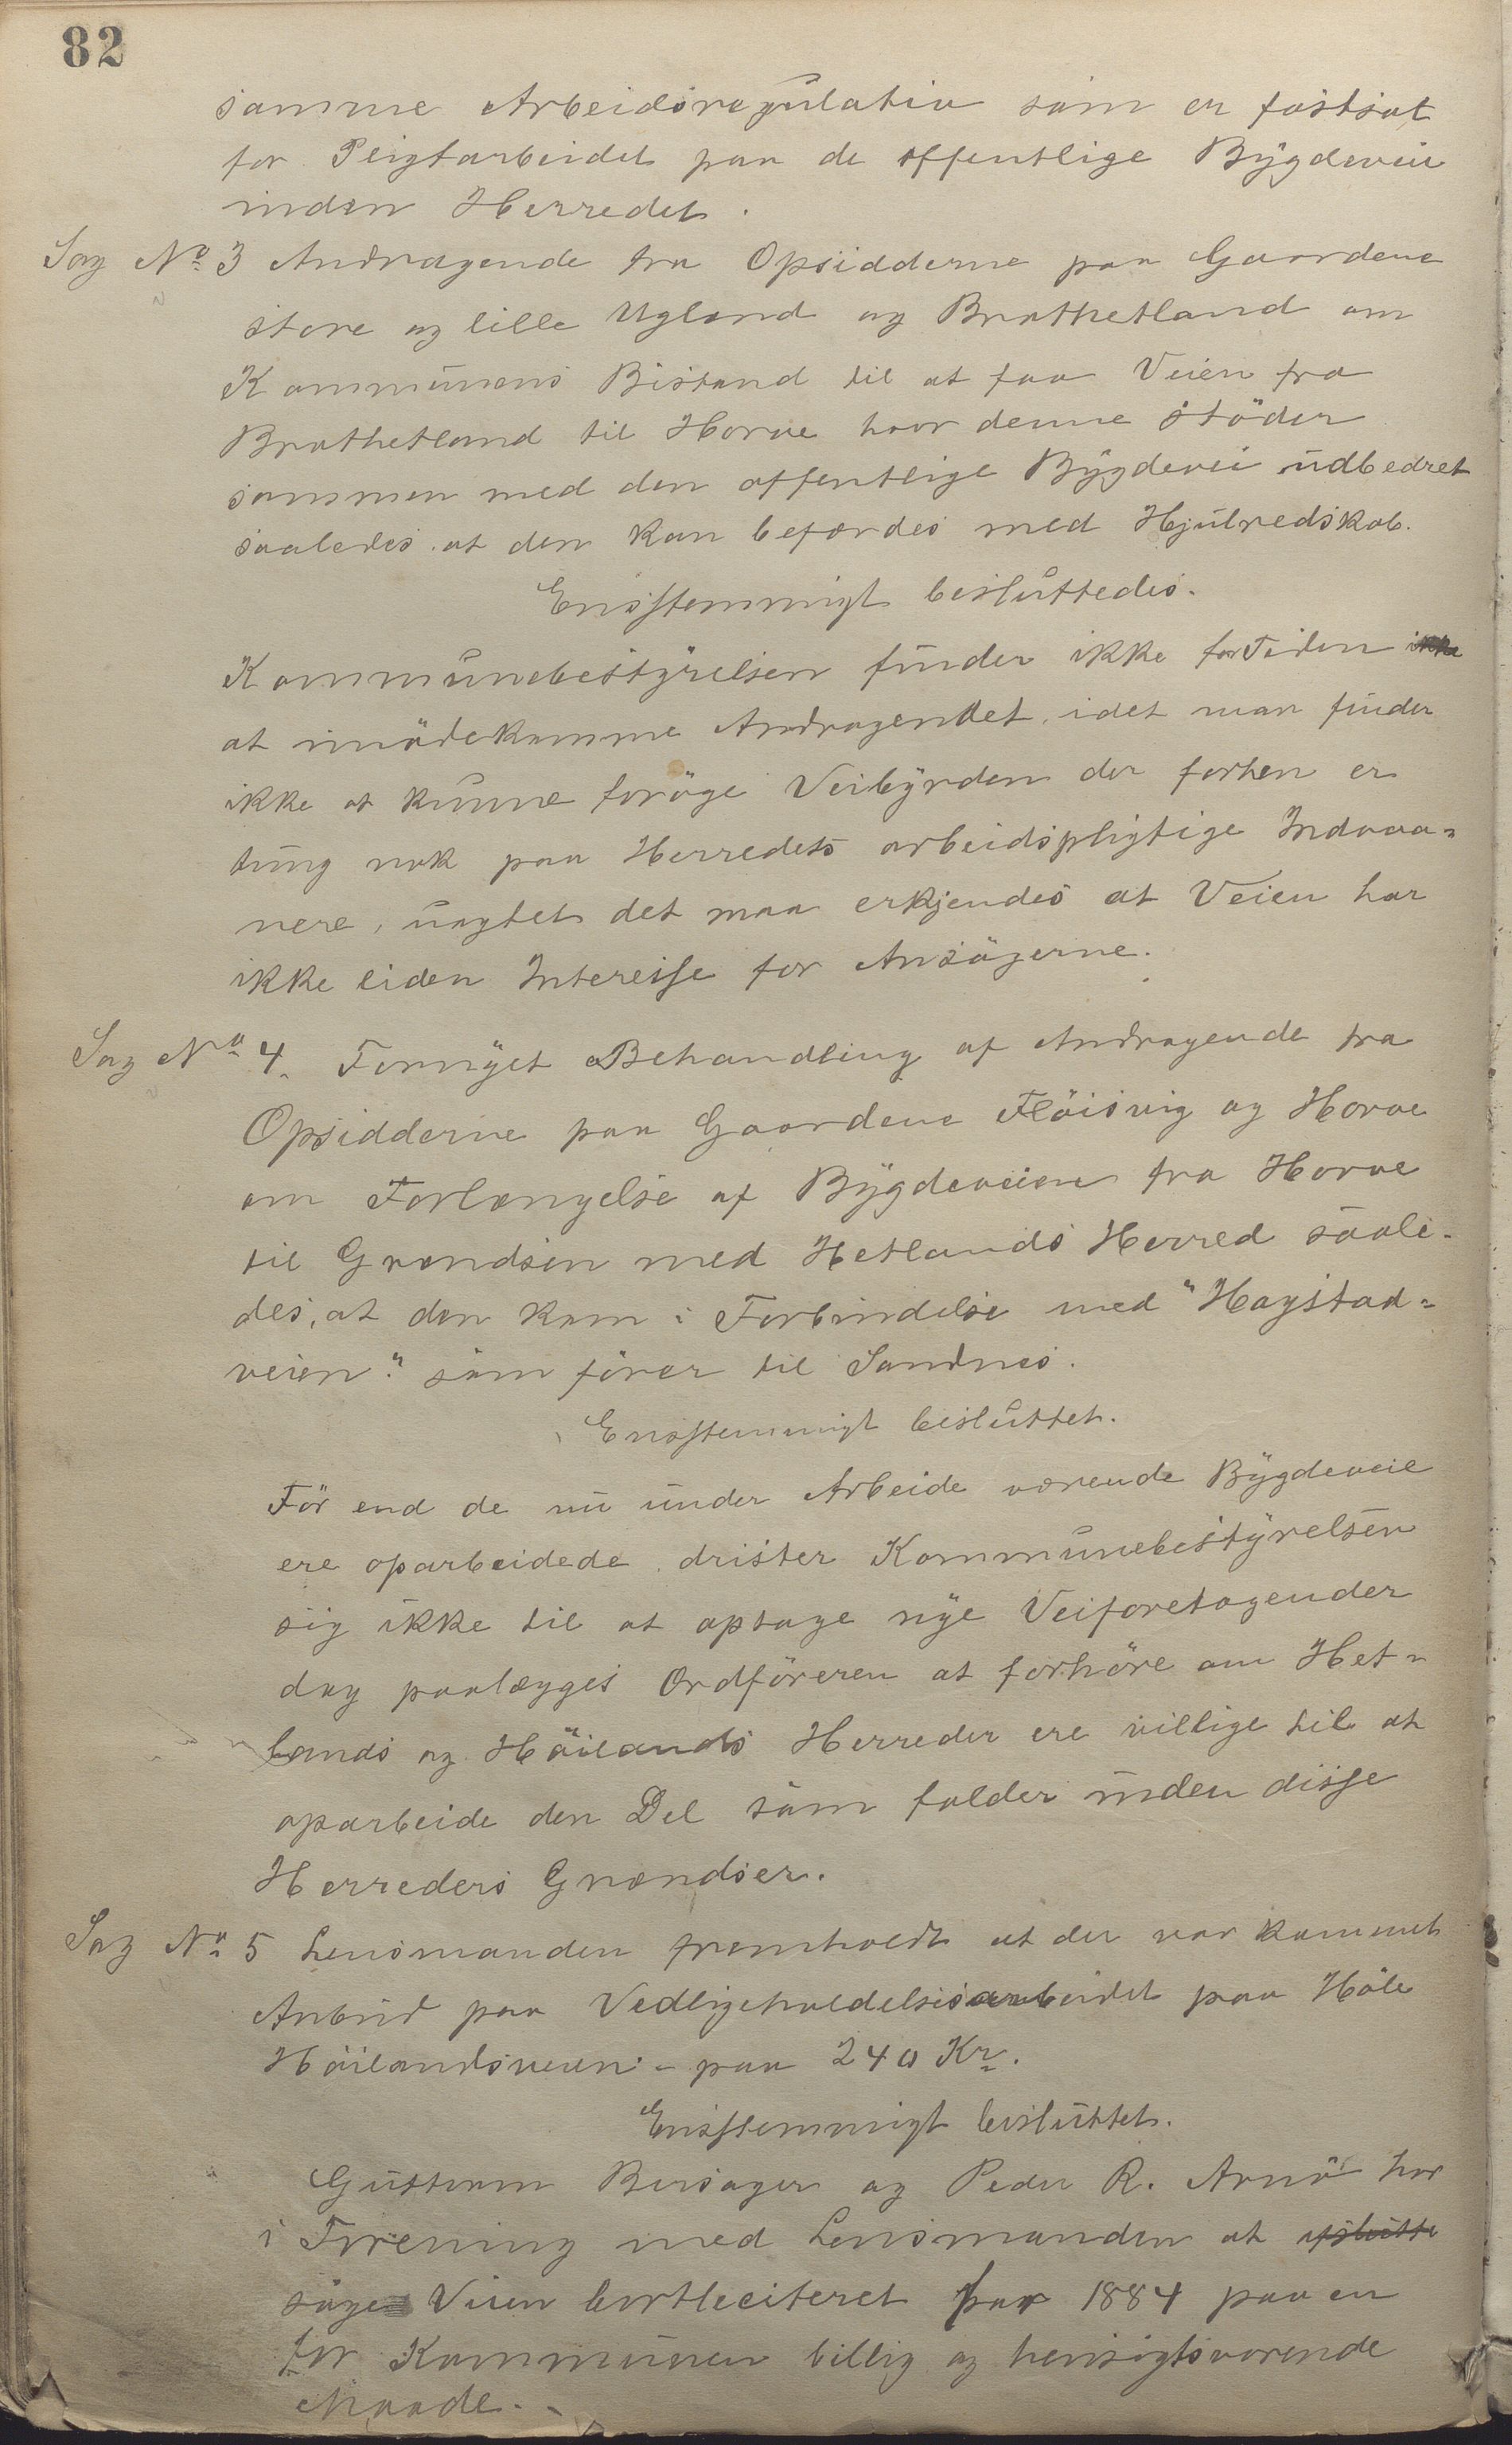 82
samme Arbeidsregulativ som er fastsat
for Pligtarbeidet paa de offentlige Bygdeveie
inden Herredet.
Sag No 3 Andragende fra Opsidderne paa Gaardene
store og lille Ugland og Brathetland om
Kommunens Bistand til at faa Veien fra
Brathetland til Horve hvor denne stöder
sammen med den offentlige Bygdevei udbedret
saaledes at den kan befærdes med Hjulredskab.
Enstemmigt besluttedes.
Kommunebestyrelsen finder ikke for Tiden ikke
at imödekomme Andragendet, idet man finder
ikke at kunne foröge Veibyrden der forhen er
tung nok paa Herredets arbeidspligtige Indvaa-
nere, uagtet det maa erkjendes at Veien har
ikke liden Interesse for Ansögerne.
Sag No 4. Fornyet Behandling af Andragende fra
Opsidderne paa Gaardene Flöisvig og Horve
om Forlængelse af Bygdeveien fra Horve
til Grændsen med Hetlands Herred saale-
des, at den kom i Forbindelse med "Hogstad-
veien" som förer til Sandnes.
Enstemmigt besluttet.
För end de nu under Arbeide værende Bygdeveie
ere oparbeidede drister Kommunebestyrelsen
sig ikke til at optage nye Veiforetagender
dog paalægges Ordföreren at forhöre om Het-
lands og Höilands Herreder ere villige til at
oparbeide den Del som falder inden disse
Herreders Grændser.
Sag No 5 Lensmanden fremholdt at der var kommet
Anbud paa Vedligeholdelsesarbeidet paa Höle
Höilandsveien - paa 240 Kr.
Enstemmigt besluttet.
Guttorm Bersager og Peder R. Arnö har
i Forening med Lensmanden at afslutte
söge Veien bortliciteret for 1884 paa en
for Kommunen billig og hensigtsvarende
Maade.